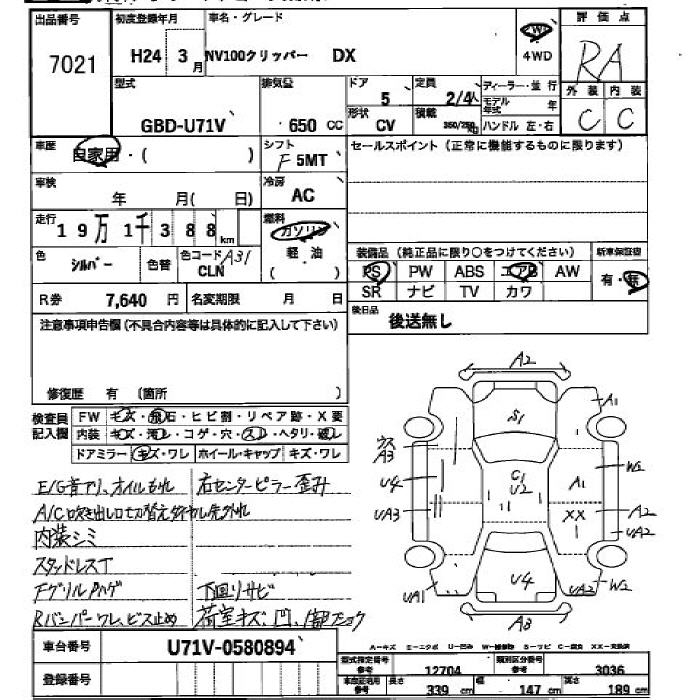 出品番号 初度登録年月 車名・グレード 評価点
7021 H24 3月 NV100クリッパー DX 4WD RA
型式 排気量 ドア 定員 ディーラー・並行 外装 内装
GBD-U71V 650 CC 5 2/4人 モデル年式 年 C C
形状 積載
CV 350/250kg ハンドル 左・右
車歴 自家用・( ) シフト F5MT セールスポイント(正常に機能するものに限ります)
車検 年 月( 日) 冷房 AC
走行 19万1千388km 燃料 ガソリン 軽・油 ( )
色 シルバー 色替 色コード A31 CLN
装備品(純正品に限り○をつけてください) 新車保証書
PS PW ABS エアB AW 有・無
SR ナビ TV カワ
R券 7,640円 名変期限 月 日
後日品 後送無し
注意事項申告欄(不具合内容等は具体的に記入して下さい)
修復歴 有 (箇所 )
検査員記入欄 FW キズ・飛石・ヒビ割・リペア跡・X要
内装 キズ・汚レ・コゲ・穴・スレ・ヘタリ・破レ
ドアミラー キズ・ワレ ホイール・キャップ キズ・ワレ
E/G音アリ、オイルもれ 右センターピラー歪み
A/C吹き出し口切替え
内装シミ
スタッドレスT
Fグリルハゲ 下回りサビ
Rバンパーワレ、ビス止め 荷室キズ、凹
A2
A1
S1
A3
U4 W2
C1
U2
A1
UA3 XX A2
UA2
UA1 U4 UA2 W2
A3
車台番号 U71V-0580894
A-キズ E-エクボ U-凹み W-補修跡 S-サビ C-腐食 XX-交換済
登録番号
型式指定番号 参考 12704 類別区分番号 参考 3036
車車証記用 参考 長さ 339 cm 幅 147 cm 高さ 189 cm